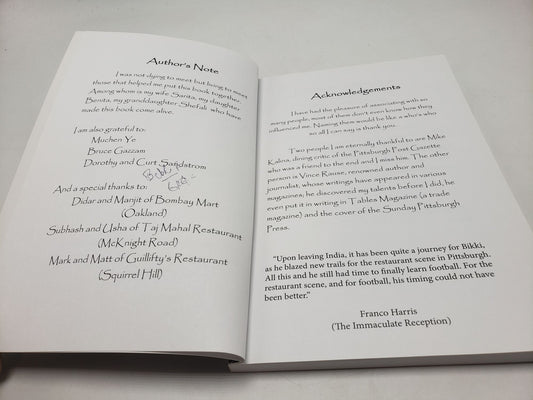 Author's Note
I was not dying to meet but living to meet
those that helped me put this book together.
Among whom is my wife Sarita, my daughter
Benita, my granddaughter Shefali who have
made this book come alive.
I am also grateful to:
Muchen Ye
Bruce Gazzam
Dorothy and Curt Sandstrom
And a special thanks to:
Didar and Manjit of Bombay Mart
(Oakland)
Subhash and Usha of Taj Mahal Restaurant
(McKnight Road)
Mark and Matt of Guillifty's Restaurant
(Squirrel Hill)
Acknowledgements
I have had the pleasure of associating with so
many people; most of them don't even know how they
influenced me. Naming them would be like a who's who
so all I can say is thank you.
Two people I am eternally thankful to are Mike
Kalina, dining critic of the Pittsburgh Post Gazette
who was a friend to the end and I miss him. The other
person is Vince Rause, renowned author and
journalist, whose writings have appeared in various
magazines; he discovered my talents before I did, he
even put it in writing in Tables Magazine (a trade
magazine) and the cover of the Sunday Pittsburgh
Press.
"Upon leaving India, it has been quite a journey for Bikki,
as he blazed new trails for the restaurant scene in Pittsburgh.
All this and he still had time to finally learn football. For the
restaurant scene, and for football, his timing could not have
been better."
Franco Harris
(The Immaculate Reception)